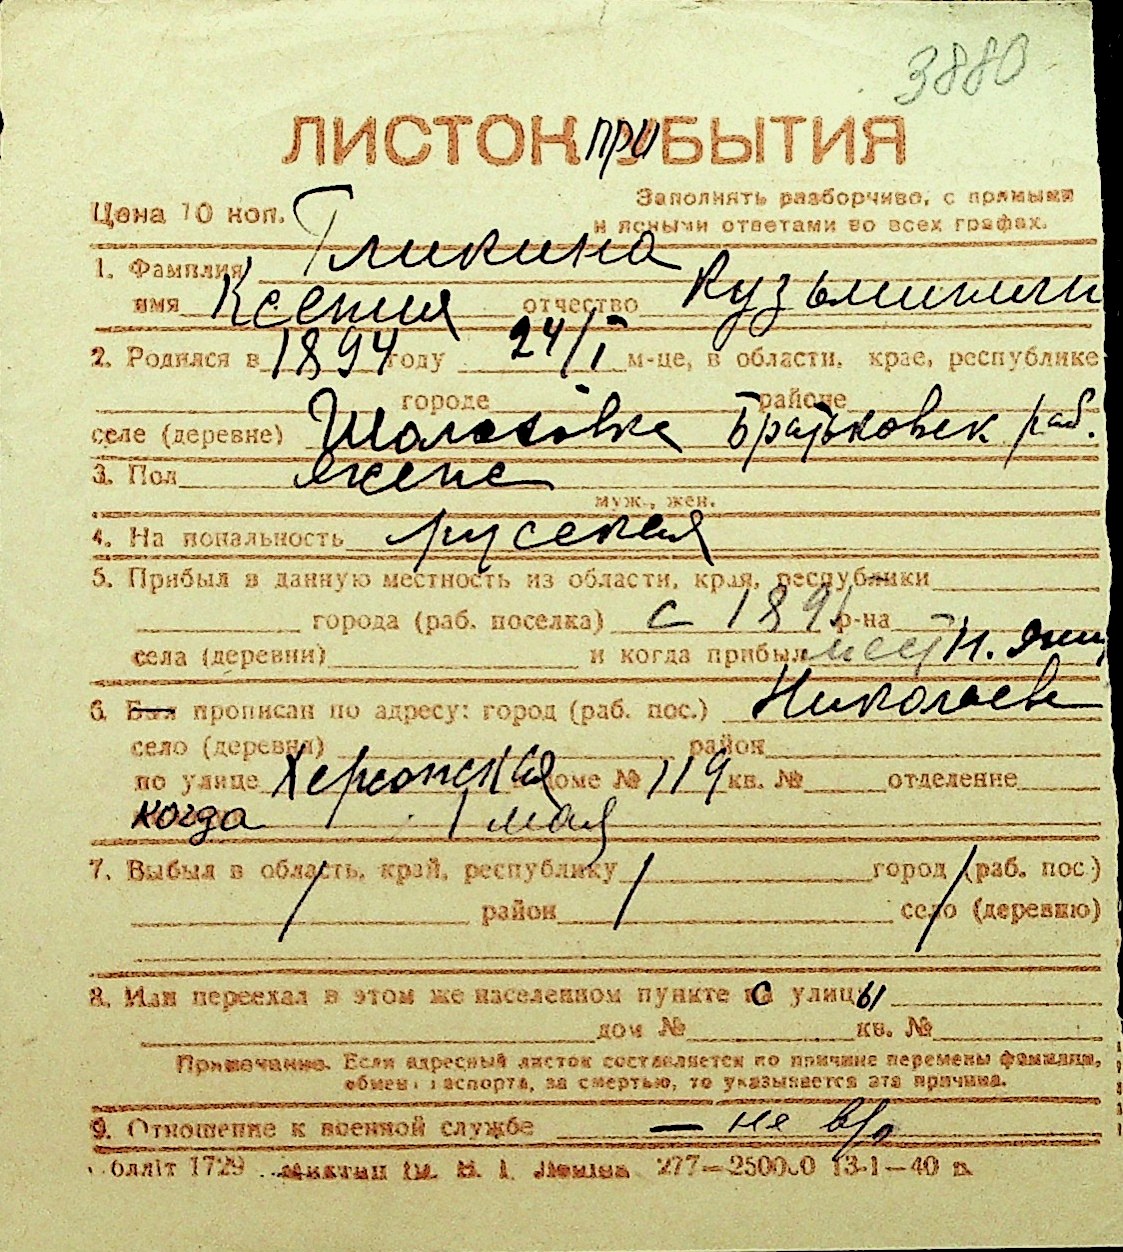 3880
ЛИСТОК ПРИБЫТИЯ
Цена 10 коп. Заполнять разборчиво, с прямыми
и ясными ответами во всех графах.
1. Фамилия Гликина
имя Ксения отчество Кузьминични
2. Родился в 1894 году 24/I м-це, в области, крае, республике
городе районе
селе (деревне) Шолоховка Братьковск раб.
3. Пол женс
муж., жен.
4. Национальность русская
5. Прибыл в данную местность из области, края, республики
города (раб. поселка) с 1891 р-на
села (деревни) и когда прибыл мест н.
6. Был прописан по адресу: город (раб. пос.) Николаев
село (деревни) район
по улице Херсонская доме № 119 кв. № отделение
когда 1 мая
7. Выбыл в область, край, республику город (раб. пос.)
район село (деревню)
8. Или переехал в этом же населенном пункте с улицы
дом № кв. №
Примечание. Если адресный листок составляется по причине перемены фамилии,
обмена паспорта, за смертью, то указывается эта причина.
9. Отношение к военной службе — не в/о
олліт 1729 277—250000 13-1—40 г.